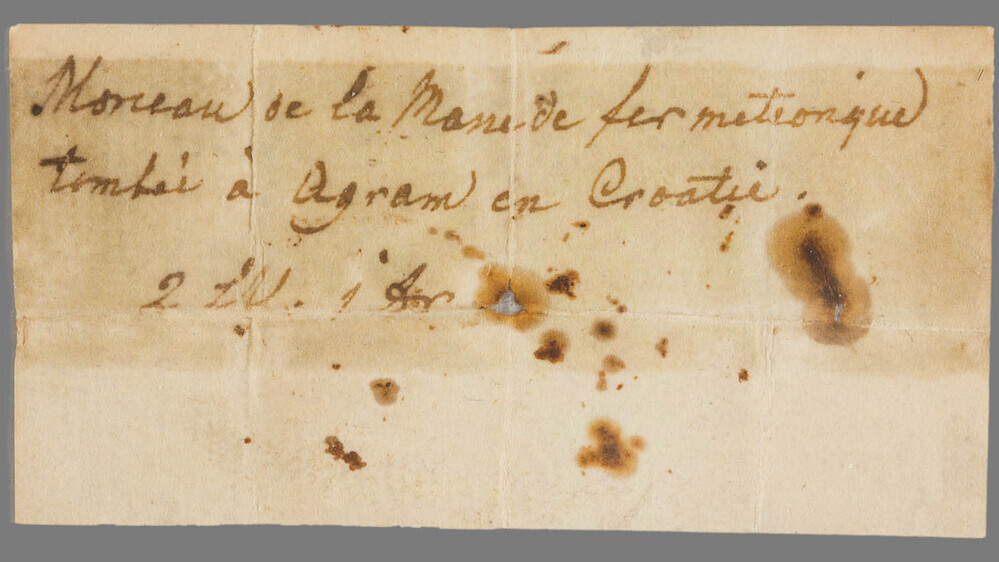 Morceau de la Masse de fer meteorique
tombée à Agram en Croatie.
2 LU. 1